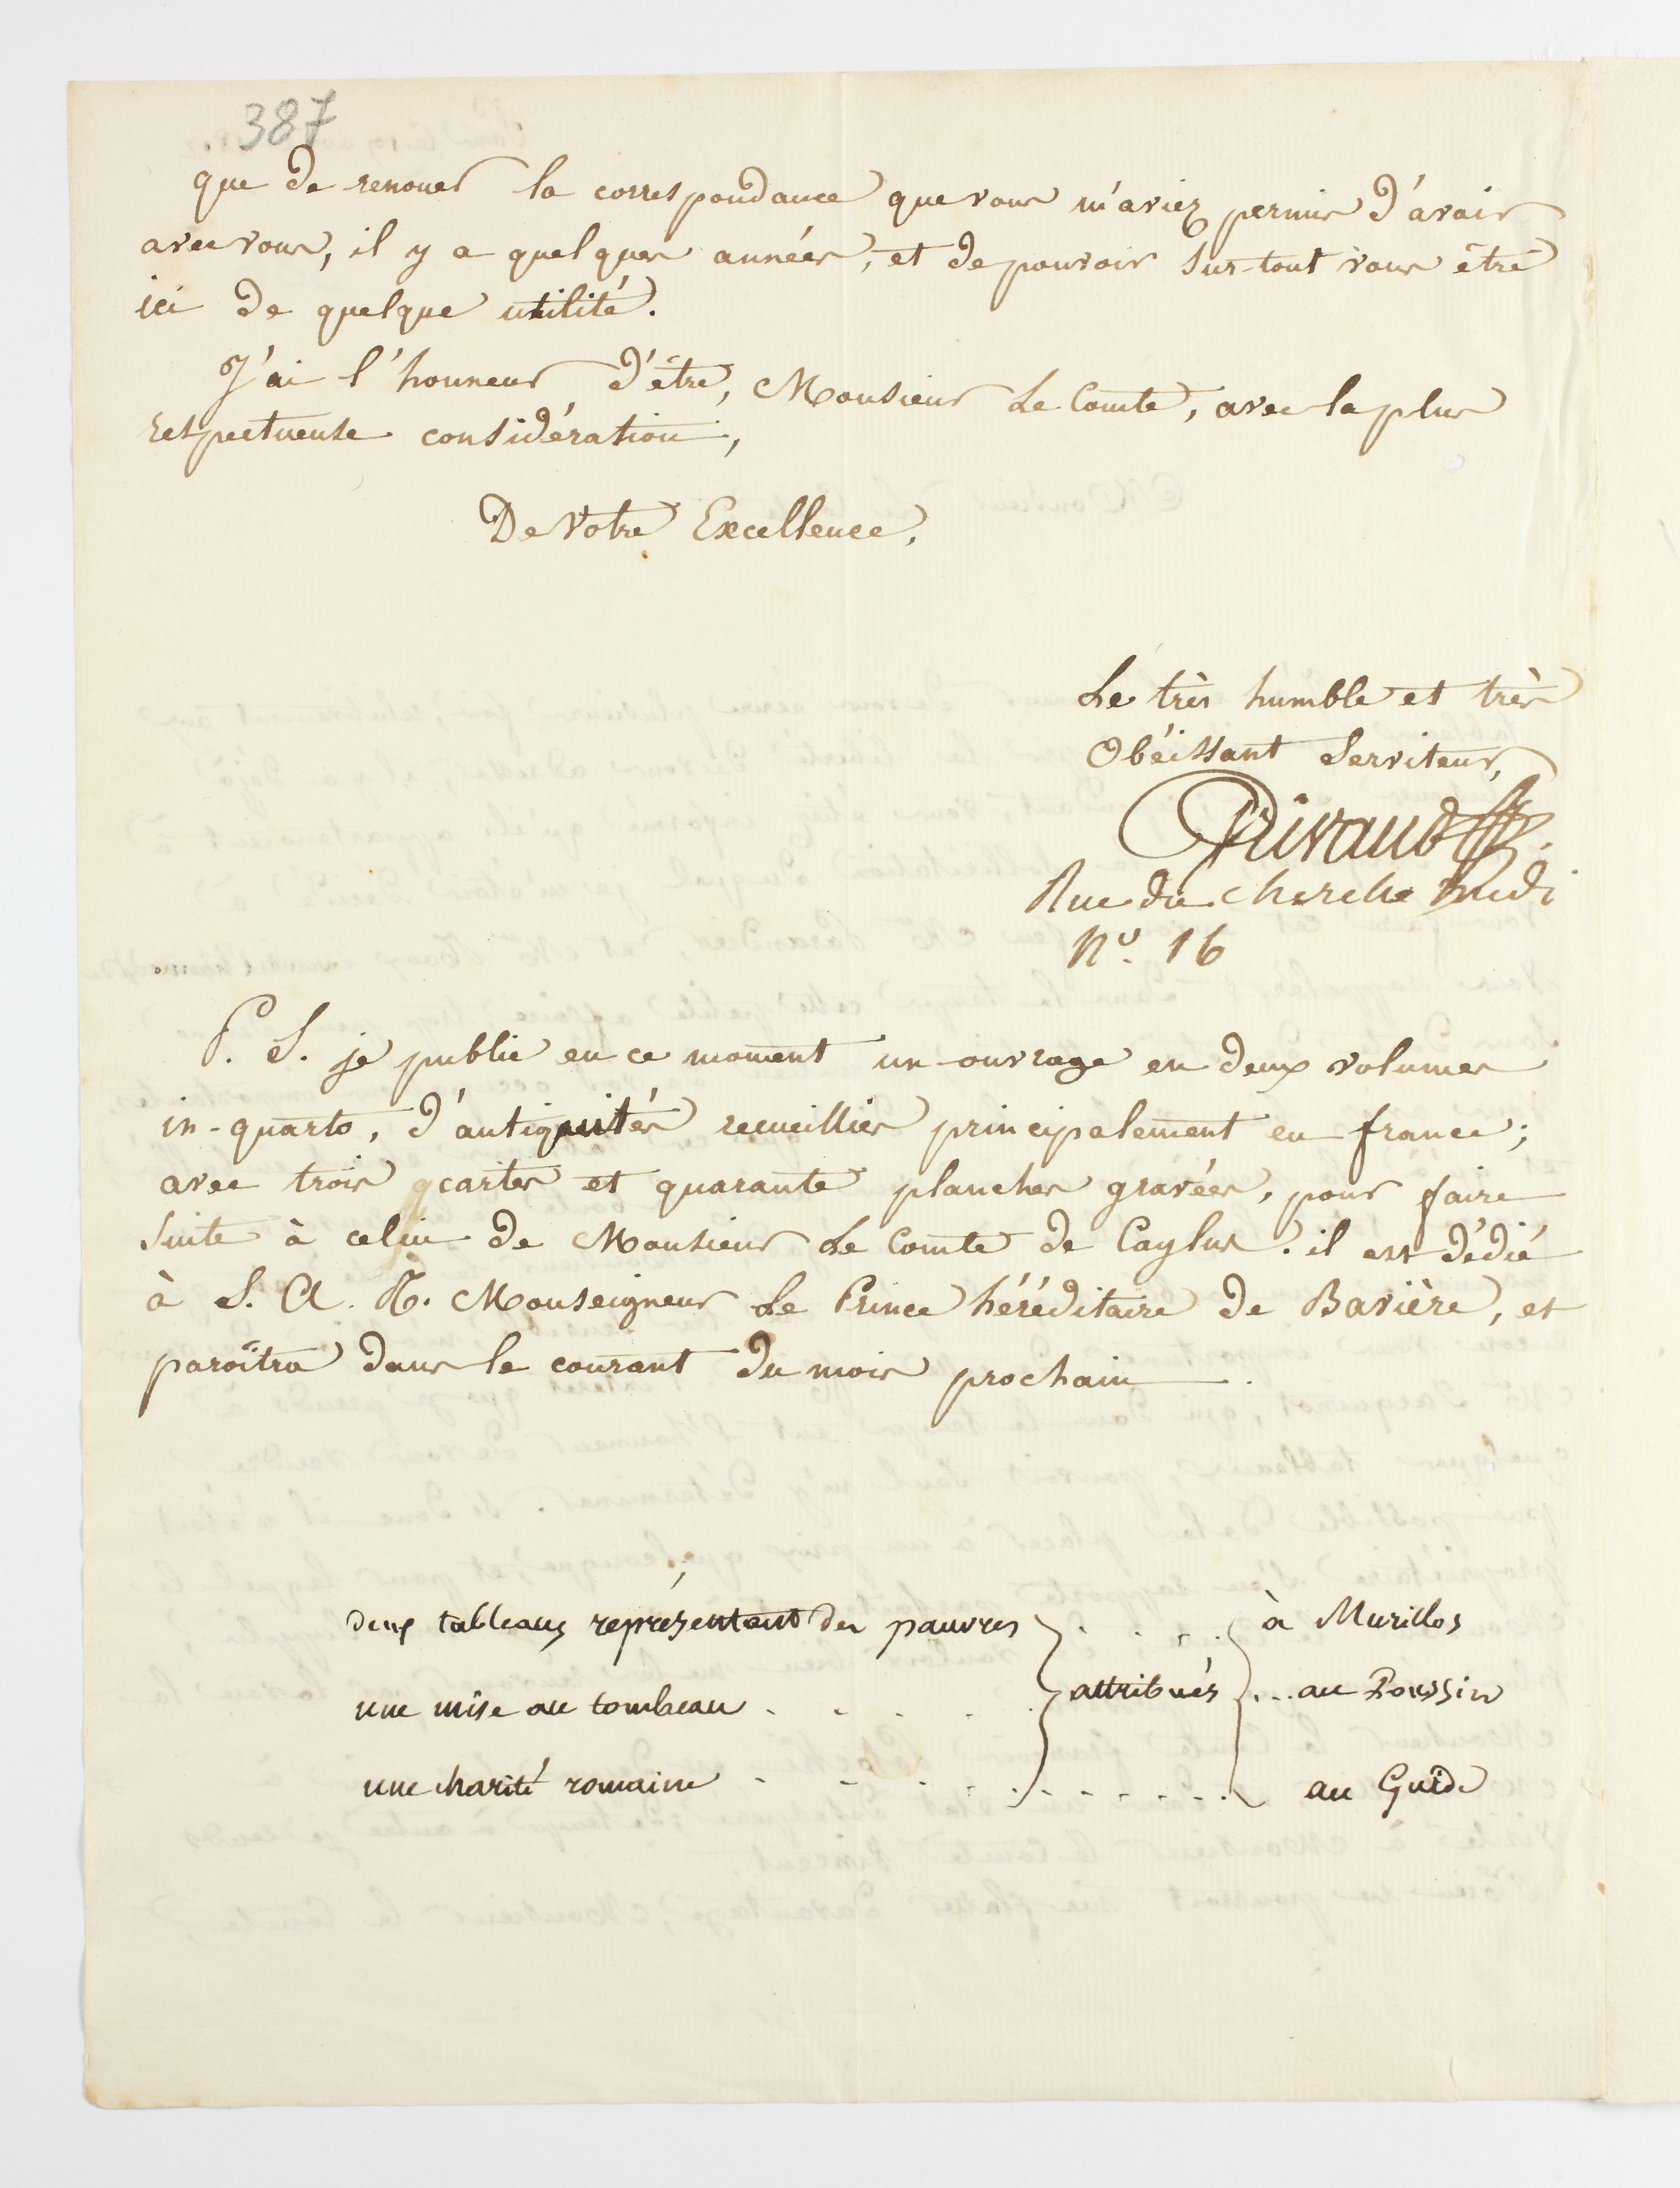 387
que de renouer la correspondance que vous m'aviez permis d'avoir
avec vous, il y a quelques années, et de pouvoir sur-tout vous être
ici de quelque utilité.
J'ai l'honneur d'être, Monsieur Le Comte, avec la plus
respectueuse considération,
De Votre Excellence,
Le très humble et très
Obéissant Serviteur,
Grivaud
Rue du Cherche Midi
N.º 16
P. S. je publie en ce moment un ouvrage en deux volumes
in-quarto, d'antiquités recueillies principalement en france;
avec trois cartes et quarante planches gravées, pour faire
suite à celui de Monsieur Le Comte de Caylus. il est dédié
à S. A. R. Monseigneur Le Prince héréditaire de Bavière, et
paroîtra dans le courant du mois prochain.
deux tableaux représentant des pauvres . . . . à Murillos
une mise au tombeau . . . . . attribués . . . au Poussin
une charité romaine . . . . . . . . . . . . au Guide